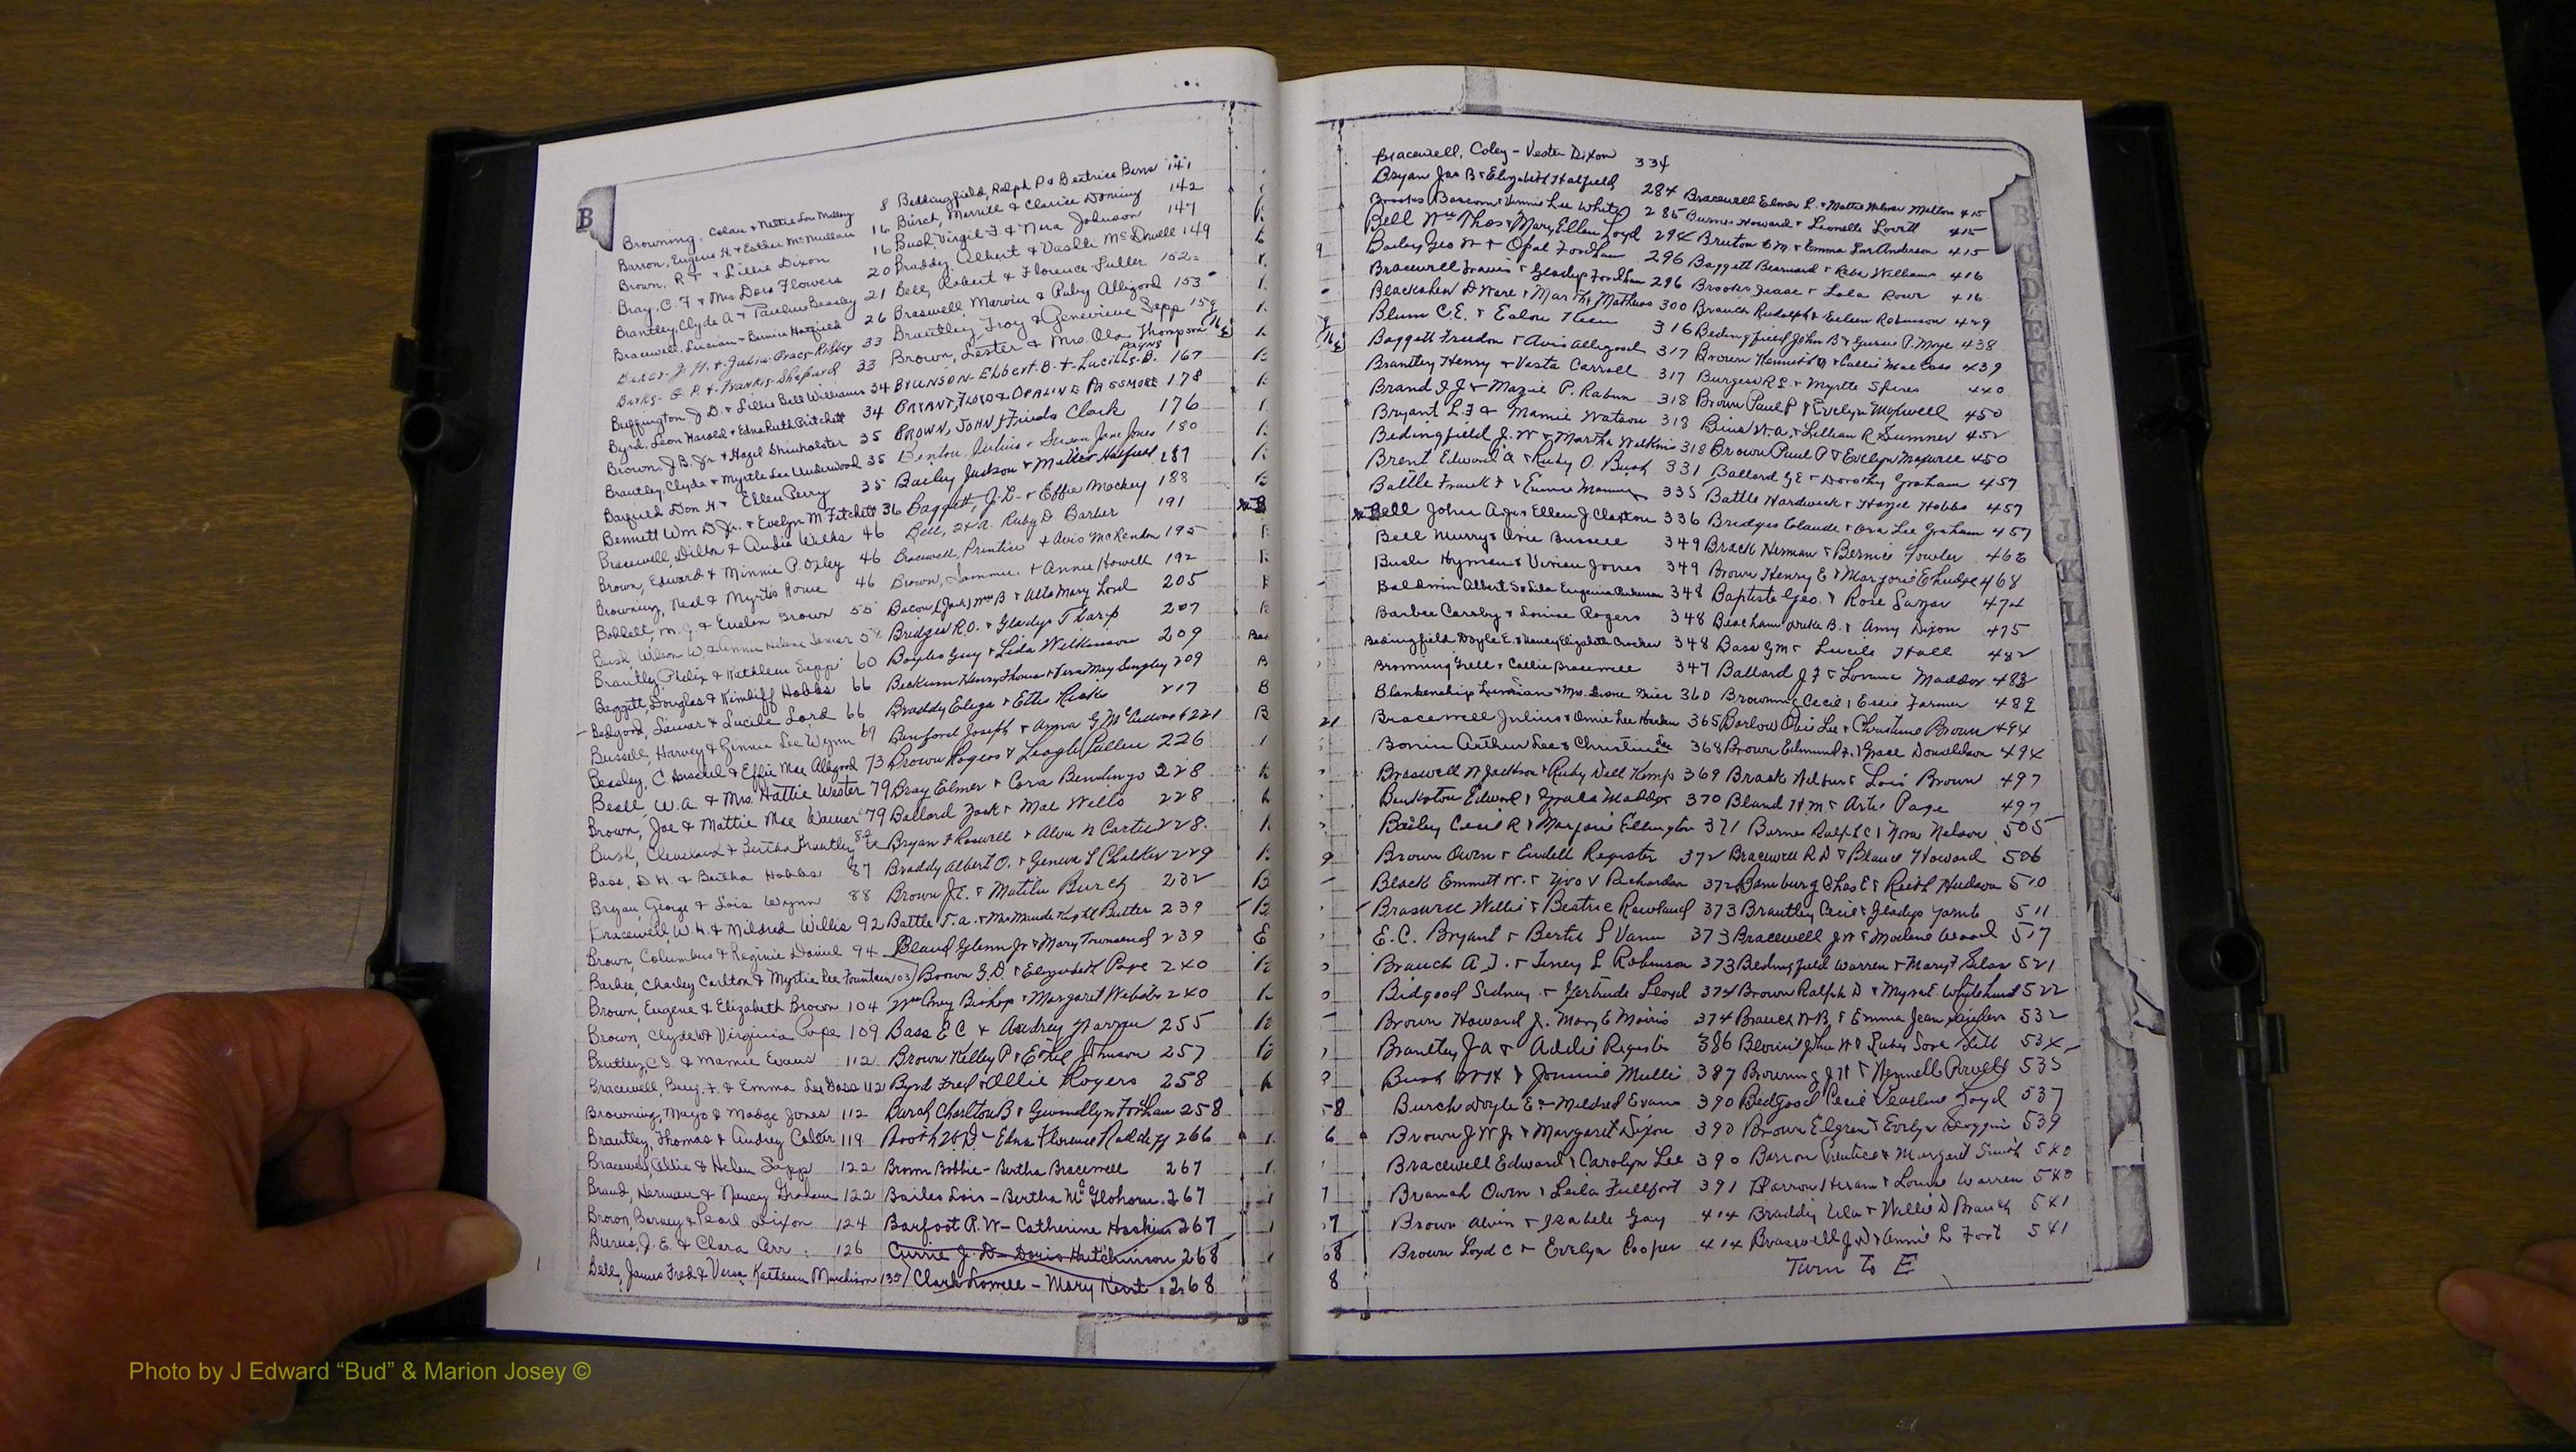 B
Browning, Colau & Nettie Lou
Barron, Eugene H. & Esther McMullan 8
Brown, R F & Lillie Dixon 16
Bray, C. F & Mrs Dora Flowers 16
Brantley, Clyde A & Pauline Beasley 20
Bracewell, Lucian & Bernice Hatfield 21
Baker J. H. & Julia Grace Rigby 26
Banks G. P. & Frankie Shepard 33
Buffington J. D. & Lillie Bell Williams 34
Byrd, Leon Harold & Edna Ruth Pritchett 34
Brown, J. B. Jr & Hazel Shinholster 35
Brantley, Clyde & Myrtle Lee Underwood 35
Bayfield Don H & Ellen Perry 35
Bennett Wm D Jr. & Evelyn M Fitchett 36
Bracewell, Dilton & Audie Wilks 46
Brown, Edward & Minnie P. Oxley 46
Browning, Neal & Myrtis Rowe 46
Boblett, M. J. & Euelon Brown 55
Bush, Wilson W. & Annie Helene 58
Brantley, Phelix & Kathleen Sapp 60
Baggett, Douglas & Kindliff Hobbs 66
Bedgood, Lawar & Lucile Lord 66
Bussell, Harvey & Ginnie Lee Wynn 69
Beasley, C. Herschel & Effie Mae Allgood 73
Beall, W. A. & Mrs. Hattie Wester 79
Brown, Joe & Mattie Mae Warner 79
Bush, Cleveland & Bertha Brantley
Bass, D. H. & Bertha Hobbs 87
Bryan, George & Lois Wynn 88
Bracewell, W. H. & Mildred Willis 92
Brown, Columbus & Reginie Daniel 94
Barbee, Charley Carlton & Myrtie Lee Fountain 103
Brown, Eugene & Elizabeth Brown 104
Brown, Clyde W & Virginia Pope 109
Bentley, C. J. & Mamie Evans 112
Bracewell, Benj. F. & Emma Lee Bass 112
Browning, Mayo & Madge Jones 112
Brantley, Thomas & Audrey Colter 119
Bracewell, Ollie & Helen Sapp 122
Braud, Herman & Nancy Graham 122
Brown, Barney & Pearl Dixon 124
Burns, J. E. & Clara Orr 126
Bell, James Fred & Versa Kathleen Murchison 135
Beddingfield, Ralph P & Beatrice Bass 141
Burch, Merrill & Clarice Doming 142
Bush, Virgil F & Nora Johnson 147
Braddy, Albert & Vashti McDaniel 149
Bell, Robert & Florence Fuller 152
Braswell, Marvin & Ruby Alligood 153
Brantley, Troy & Genevieve Sapp 159
Brown, Lester & Mrs. Ola Thompson
BRUNSON - Elbert. B. & Lucille B. 167
BRYANT, FLOYD & OPALINE PASSMORE 178
BROWN, JOHN & Frieda Clark 176
Benton, Julius & Susan Jane Jones 180
Bailey Judson & Mettie Hatfield 187
Baggett, J. L. & Effie Mackey 188
Bell, & Ruby D Barber 191
Bracewell, Prentice & Avis McLendon 195
Brown, Sammie & Annie Howell 192
Bacon (Jack) Wm B & Alta Mary Lord 205
Bridges R. O. & Gladys Tharp 207
Boyles Guy & Lida Wilkinson 209
Beckum Henry Thomas & Vera May Singley 209
Braddy Elega & Ettis Ricks 217
Benford Joseph & Anna G. McCullouch 221
Brown Rogers & Leagh Pullen 226
Bray Elmer & Cora Bembryo 228
Ballard Zack & Mae Wells 228
Bryan F Rosevelt & Alva N Carter 228
Braddy Albert O. & Geneva L Chalker 229
Brown J. E. & Matilu Burch 232
Battle T. A. & Mrs Maude Kight Butler 239
Bland Glenn Jr & Mary Townsend 239
Brown G. D. & Elizabeth Pope 240
Wm Coney Bishop & Margaret Webster 240
Bass E C & Audrey 255
Brown Kelley P & Ethel Johnson 257
Byrd Fred & Ollie Rogers 258
Burch Charlton B & Gwendlyn Fordham 258
Booth & Edna Florence Radney 266
Brown Bobbie - Bertha Bracewell 267
Bailes Lois - Bertha McGlohorn 267
Barfoot R. W - Catherine Haskins 267
Currie J. D - Doris Hutchinson 268
Clark Lowell - Mary Kent 268
Bracewell, Coley - Vester Dixon 334
Bryan Jas B & Elizabeth Hatfield 284
Brooks Bascom & Vennie Lee White 285
Bell Wm Thos & Mary Ellen Loyd 294
Bailey Geo W & Opal Fordham 296
Bracewell Travis & Gladys Fordham 296
Blackshear D Ware & Martha Mathews 300
Blum C. E. & Ealou Keen 316
Baggett Freedom & Avis Alligood 317
Brantley Henry & Vasta Carroll 317
Brand J J & Mazie P. Rabun 318
Bryant L. F & Mamie Watson 318
Bedingfield J. W & Martha Wilkins 318
Brent Edward A & Ruby O. Bush 331
Battle Frank F & Eunice 335
Bell John A Jr & Ellen J Claxton 336
Bell Murry & Ovie Bussell 349
Bush Hyman & Vivian Jones 349
Baldwin Albert S & Lida Eugenia Parkerson 348
Barbee Carsby & Louise Rogers 348
Bedingfield Doyle E. & Nancy Elizabeth Crocker 348
Browning Grell & Callie Bracewell 347
Blankenship Lucian & Mrs. Leone Grier 360
Bracewell Julius & Omie Lee Harden 365
Bonin Arthur Lee & Christine Lee 368
Braswell W Jackson & Ruby Dell Kemp 369
Bankston Edward & Zula Maddox 370
Bailey Cecil R & Marjorie Ellington 371
Brown Owen & Eudell Register 372
Black Emmett W. & Zivo V Richardson 372
Braswell Willis & Beatrice Rowland 373
E. C. Bryant & Bertie L Vann 373
Branch A. J. & Liney L Robinson 373
Bidgood Sidney & Gertrude Lloyd 374
Brown Howard J. Mary E Morris 374
Brantley J A & Addie Register 386
Bush W H & Jommie Mullis 387
Burch Doyle E & Mildred Evans 390
Brown J W Jr & Margaret Dixon 390
Bracewell Edward & Carolyn Lee 390
Branch Owen & Leila Fullfort 391
Brown Alvin & Isabele Gay 414
Brown Loyd C & Evelyn Cooper 414
Bracewell Elmer L. & Mattie Melton 415
Burns Howard & Leonelle Lovett 415
Bruton E M. & Emma Lou Anderson 415
Baggett Bearnard & Reba Williams 416
Brooks Isaac & Lola Rowe 416
Branch Rudolph & Eileen Robinson 429
Bedingfield John B & Gussie P. Moye 438
Brown Kenneth M & Callie Mae Cass 439
Burgess R L & Myrtle Spires 440
Brown Paul P & Evelyn Maxwell 450
Bins W. A. & Lillian R Sumner 452
Brown Paul P & Evelyn Maxwell 450
Ballard G E & Dorothy Graham 457
Battle Hardwick & Hazel Hobbs 457
Bridges Claude & Ora Lee Graham 457
Brack Herman & Bernice Fowler 466
Brown Henry E & Marjorie E Judge 468
Baptiste Geo. & Rose Suzor 474
Beacham Duke B. & Amy Dixon 475
Bass G M & Lucile Hall 482
Ballard J F & Lovinia Maddox 483
Browning Cecil & Essie Farmer 489
Barlow Obie Lee & Christine Brown 494
Brown Edmund F. & Grace Donaldson 494
Brack Wilbur & Lois Brown 497
Bland H M & Artie Page 497
Barnes Ralph C & Nora Nelson 505
Bracewell R D & Blanch Howard 506
Bamburg Chas E & Ruth Hudson 510
Brantley Cecil & Gladys 511
Bracewell J W & Modene Wood 517
Bedingfield Warren & Mary F 521
Brown Ralph D & Myra E Whitehurst 522
Branch W B, & Emma Jean 532
John W & Ruby 534
Browning J H & Nennell Powell 535
Bedgood Cecil & Earline Loyd 537
Brown Elgren & Evelyn Scoggins 539
Barron Prentice & Margaret Smith 540
Barron Hiram & Louise Warren 540
Braddy Lila & Willie D Branch 541
Braswell J W & Annie L Fort 541
Turn To E
Photo by J Edward “Bud” & Marion Josey ©